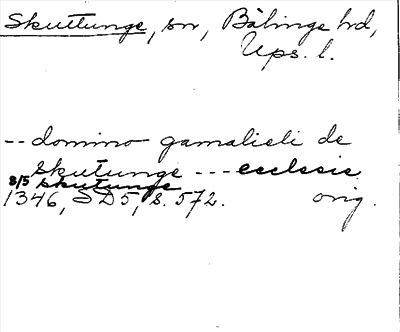 Skuttunge, sn, Bälinge hd,
Ups. l.
-- domino gamalieli de
skutunge --- ecclesie
skutunge
8/5 1346, SD5, s. 572. orig.